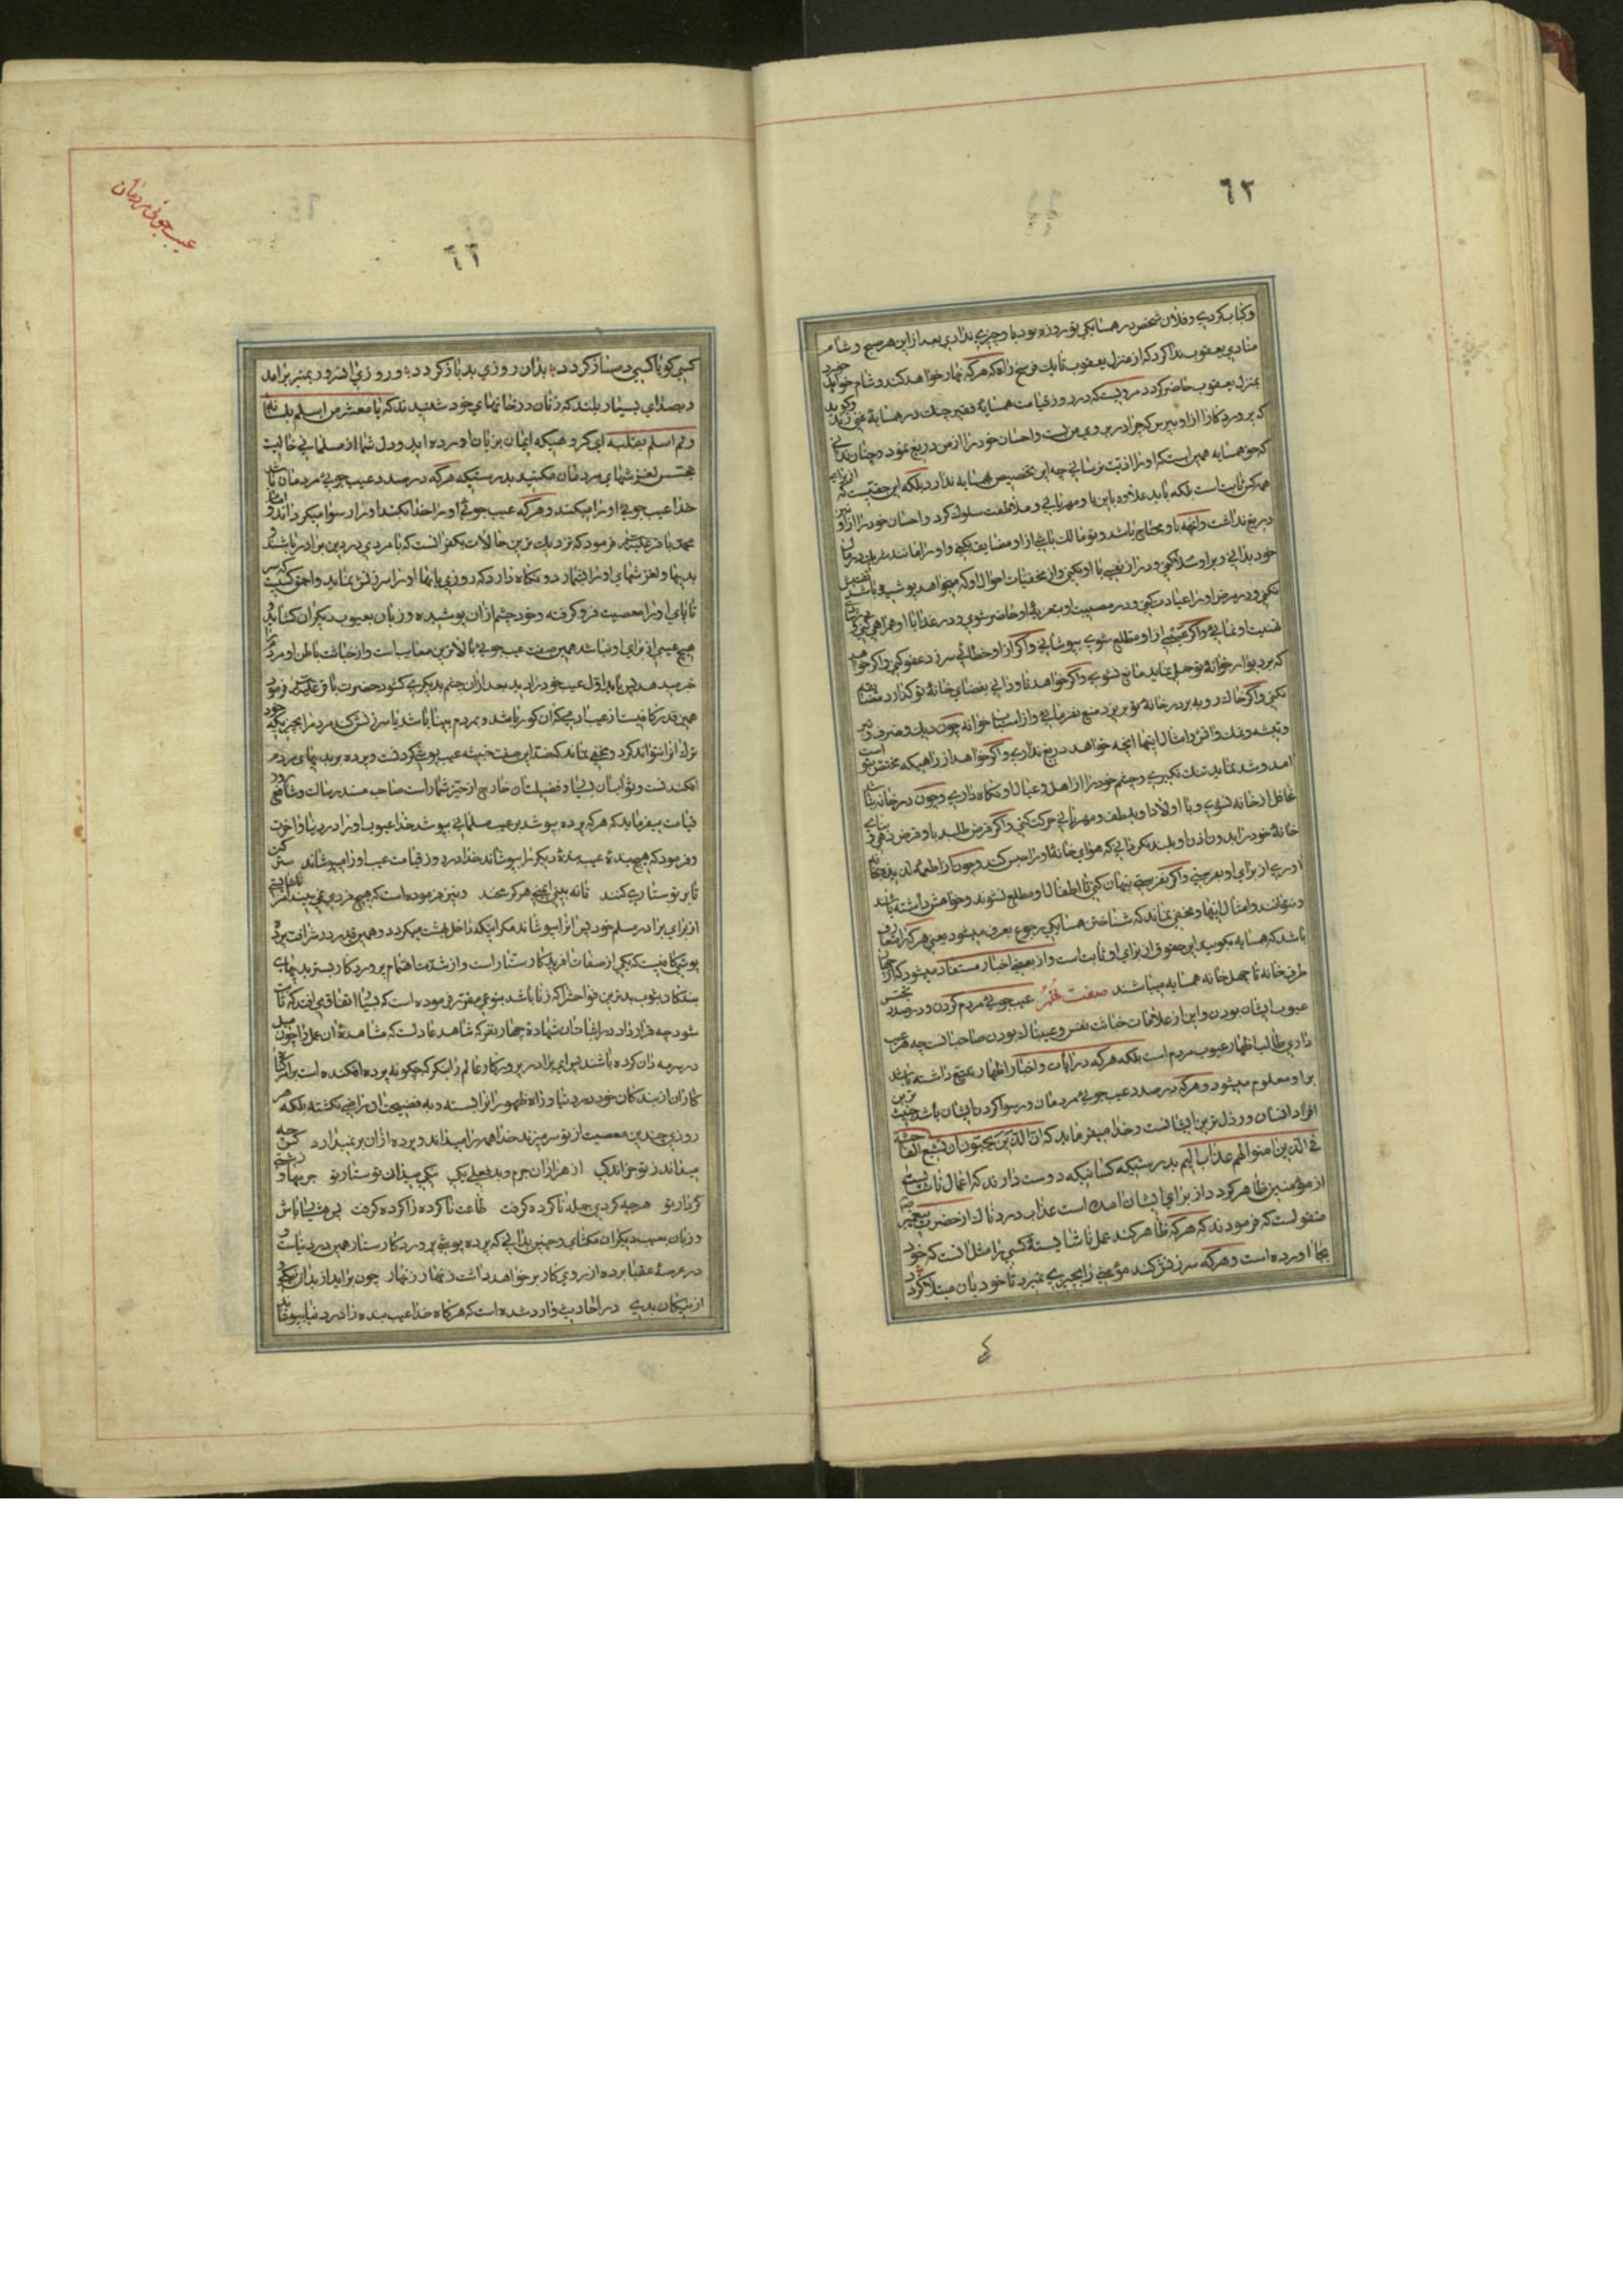 ٦٢
وکباب کردی و فلان شخص در همسایکی تو روزه بود باو چیزی ندادی بعد از این هر صبح و شام
منادی یعقوب ندا کرد که از منزل یعقوب تا یک فرسخ راه که هر که نهار خواهد کند و شام خواهد خورد
بمنزل یعقوب حاضر کردد مرویست که در روز قیامت همسایهٔ فقیر چنک در همسایهٔ غنی زند وکوید
که پروردکارا از او بپرس که چرا در بروی من بست و احسان خود را از من دریغ نمود و چنان ندانی
که حق همسایه همین است که او را اذیت نرسانی چه این تخصیص همسایه ندارد بلکه این حقیست که از برای
همه کس ثابت است بلکه باید علاوه بر این با او مهربانی و ملاطفت سلوک کرد و احسان خود را از او نیز
دریغ نداشت و آنچه باو محتاج باشد و تو مالک باشی از او مضایقه نکنی و او را مانند شریک در مال
خود بدانی و بر او سلام کنی و در از نفسی با او نکنی و از مخفیات احوال او که میخواهد پوشیده باشد تفتیش
نکنی و در مرض او را عیادت کنی و در مصیبت او بتعزیهٔ او حاضر شوی و در عزا با او همراهی کنی و در شادی
تهنیت او نمائی و اکر عیبی از او مطلع شوی بپوشانی و اکر از او خطائی سر زد عفو کنی و اکر خواهد
که بر دیوار خوانهٔ تو حمل نماید مانع نشوی و اکر خواهد ناودانی بفضای خانهٔ تو کذارد مضایقه
نکنی و اکر خاک روبه بر در خانهٔ تو بریزد منع نفرمائی و از اسباب خوانه چون دیک و ظرف و تبر
و تیشه و نمک و آتش و امثال اینها آنچه خواهد دریغ نداری و اکر خواهد از راهیکه مختص بتو است
آمد و شد نماید تنک نکیری و چشم خود را از اهل و عیال او نکاه داری و چون در خانه نباشد
غافل از خانه نشوی و با اولاد او بلطف و مهربانی حرکت کنی و اکر قرض طلبد باو قرض دهی و بنای
خانهٔ خود را بدون اذن او بلند نکردانی که هوای خانهٔ او را حبس کند و چون از اطعمه لذیذه بخانه
آوری از برای او بفرستی و اکر نفرستی پنهان کنی تا اطفال او مطلع نشوند و خواهش داشته باشند
و نتوانند و امثال اینها و مخفی نماند که شناختن همسایکی رجوع بعرف میشود یعنی هر که را متعارف
باشد که همسایه بکویند این حقوق از برای او ثابت است و از بعضی اخبار مستفاد میشود که از چهار
طرف خانه تا چهل خانه همسایه میباشند صفت نهم عیب جوئی مردم کردن و در صدد تجسس
عیوب ایشان بودن و این از علامات خباثت نفس و عیبناک بودن صاحب آنست چه هر عیب
داری طالب اظهار عیوب مردم است بلکه هر که در آیات و اخبار اظهار تتبع داشته باشد
بر او معلوم میشود و هر که در صدد عیب جوئی مردمان و رسوا کردن ایشان باشد خبیث ترین
افراد انسان و رذل ترین ایشانست و خدا میفرماید که ان الذین یحبون ان تشیع الفاحشه
فی الذین آمنوا لهم عذاب الیم بدرستیکه کسانیکه دوست دارند که اعمال ناشایست
از مؤمنین ظاهر کردد از برای ایشان آمده است عذاب دردناک از حضرت پیغمبر ص
منقولست که فرمودند که هر که ظاهر کند عمل ناشایستهٔ کسی را مثل آنست که خود
بجا آورده است و هر که سرزنش کند مؤمنی را بچیزی نمیرد تا خود بآن مبتلا کردد
٦٣
عیب جوئی مردمان
کسی کو با کسی بدساز کردد بدان روزی بد باز کردد و روزی آن سرور بمنبر برآمد
و بصدای بسیار بلند که زنان در خانهای خود شنیدند که یا معشر من اسلم بلسانه
و لم یسلم بقلبه ای کروهیکه ایمان بزبان آورده اید و دل شما از مسلمانی خالیست
تجسس لغزشهای مردمان مکنید بدرستیکه هر که در صدد عیب جوئی مردمان باشد
خدا عیب جوئی او را میکند و هر که عیب جوئی او را خدا کند او را رسوا میکرداند و امام
محمد باقر علیه السلام فرمود که نزدیک ترین حالات بکفر آنست که با مردی در دین برادر باشند و
بدیها و لغزشهای او را بشمارد و نکاه دارد که روزی بآنها او را سرزنش نماید و احمق کسیست که سر
تا پای او را معصیت فرو کرفته و خود چشم از آن پوشیده و زبان بعیوب دیکران کشاید و
هیچ عیبی از برای او نباشد همین صفت عیب جوئی بالاترین معایب است و از خباثت باطن او مردم را
خبر میدهد پس باید اول عیب خود را دید بعد از آن چشم بدیکری کشود حضرت باقر علیه السلام فرمود
همین قدر کافیست از عیب آدمی که از آن کور باشد و بمردم بینا باشد یا سرزنش کند مردم را بچیزیکه خود
ترک آن نتواند کرد و مخفی نماند که ضد این صفت خبیثه عیب پوشی کردنست و پرده بر بدیهای مردم
افکندنست و ثواب آن بسیار و فضیلت آن خارج از حیّز شمار است صاحب مسند رسالت و شافع روز
قیامت میفرماید که هر که پرده پوشد بر عیب مسلمانی بپوشد خدا عیوب او را در دنیا و آخرت
و فرمود که هیچ بندهٔ عیب بندهٔ دیکر را بپوشاند خدا در روز قیامت عیب او را میپوشاند ستر کن
تا بر تو ستاری کنند تا نه بینی ایمنی هرکز مخند و نیز فرموده است که هیچ فردی نمی بیند امر ناشایستی
از برای برادر مسلم خود پس آنرا بپوشاند مکر اینکه داخل بهشت میکردد و همین قدر در شرافت پرده
پوشی کافیست که یکی از صفات آفریدکار ستار است و از شدت اهتمام پروردکار بستر بدیهای
بندکان ثبوت بدترین فواحش را که زنا باشد بنوعی مقرر فرموده است که بسیار اتفاق نمی افتد که ثابت
شود چه قرار داد در اثبات آن شهادهٔ چهار نفر که شاهد عادلست که مشاهدهٔ آن عمل را چون میل
در سرمه دان کرده باشند پس ای برادر پروردکار عالم را بنکر که چکونه پرده افکنده است بر امر کناه
کاران از بندکان خود در دنیا و راه ظهور آنرا بسته و به فضیحت آن راضی نکشته بلکه هر
روزی چندین معصیت از تو سر میزند خدا همه را میداند و پرده از آن بر نمیدارد کس چه
میداند ز تو جز اندکی از هزاران جرم و بد فعلی یکی نیکی میدان تو ستار تو جرمها و زشتی
کردار تو هر چه کردی جمله ناکرده کرفت طاعت ناکرده را کرده کرفت پس هشیار باش
و زبان بعیب دیکران مکشای و چنین ندانی که پرده پوشی پروردکار ستار همین در دنیاست و
در عرصهٔ عقبا پرده از روی کار بر خواهد داشت زنهار زنهار چون برآید از بدان نیکی
از نیکان بدی در احادیث وارد شده است که هر کاه خدا عیب بنده را در دنیا بپوشاند